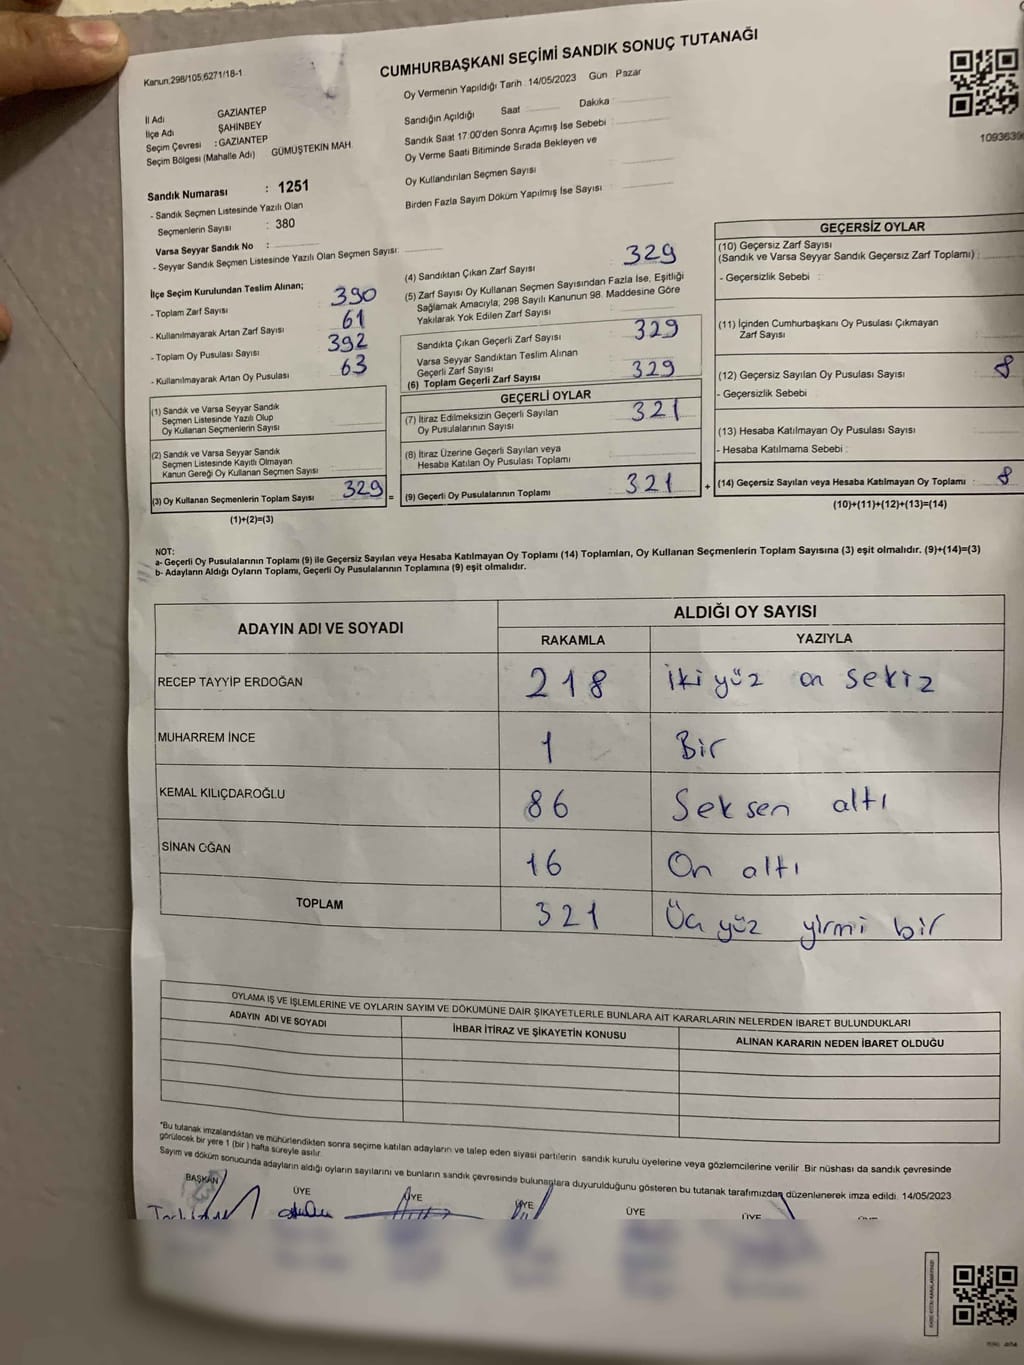 Kanun:298/105,6271/18-1
CUMHURBAŞKANI SEÇİMİ SANDIK SONUÇ TUTANAĞI
İl Adı GAZİANTEP
İlçe Adı ŞAHİNBEY
Seçim Çevresi : GAZİANTEP
Seçim Bölgesi (Mahalle Adı) GÜMÜŞTEKİN MAH.
Sandık Numarası : 1251
- Sandık Seçmen Listesinde Yazılı Olan
Seçmenlerin Sayısı : 380
Varsa Seyyar Sandık No :
- Seyyar Sandık Seçmen Listesinde Yazılı Olan Seçmen Sayısı:
Oy Vermenin Yapıldığı Tarih : 14/05/2023 Gün : Pazar
Sandığın Açıldığı Saat Dakika :
Sandık Saat 17:00'den Sonra Açımış İse Sebebi :
Oy Verme Saati Bitiminde Sırada Bekleyen ve
Oy Kullandırılan Seçmen Sayısı
Birden Fazla Sayım Döküm Yapılmış İse Sayısı :
İlçe Seçim Kurulundan Teslim Alınan;
- Toplam Zarf Sayısı 390
- Kullanılmayarak Artan Zarf Sayısı 61
- Toplam Oy Pusulası Sayısı 392
- Kullanılmayarak Artan Oy Pusulası 63
(1) Sandık ve Varsa Seyyar Sandık
Seçmen Listesinde Yazılı Olup
Oy Kullanan Seçmenlerin Sayısı
(2) Sandık ve Varsa Seyyar Sandık
Seçmen Listesinde Kayıtlı Olmayan
Kanun Gereği Oy Kullanan Seçmen Sayısı
(3) Oy Kullanan Seçmenlerin Toplam Sayısı 329 =
(1)+(2)=(3)
(4) Sandıktan Çıkan Zarf Sayısı 329
(5) Zarf Sayısı Oy Kullanan Seçmen Sayısından Fazla İse, Eşitliği
Sağlamak Amacıyla; 298 Sayılı Kanunun 98. Maddesine Göre
Yakılarak Yok Edilen Zarf Sayısı
Sandıkta Çıkan Geçerli Zarf Sayısı 329
Varsa Seyyar Sandıktan Teslim Alınan
Geçerli Zarf Sayısı
(6) Toplam Geçerli Zarf Sayısı 329
GEÇERLİ OYLAR
(7) İtiraz Edilmeksizin Geçerli Sayılan
Oy Pusulalarının Sayısı 321
(8) İtiraz Üzerine Geçerli Sayılan veya
Hesaba Katılan Oy Pusulası Toplamı
(9) Geçerli Oy Pusulalarının Toplamı 321 +
GEÇERSİZ OYLAR
(10) Geçersiz Zarf Sayısı
(Sandık ve Varsa Seyyar Sandık Geçersiz Zarf Toplamı) :
- Geçersizlik Sebebi :
(11) İçinden Cumhurbaşkanı Oy Pusulası Çıkmayan
Zarf Sayısı
(12) Geçersiz Sayılan Oy Pusulası Sayısı 8
- Geçersizlik Sebebi
(13) Hesaba Katılmayan Oy Pusulası Sayısı
- Hesaba Katılmama Sebebi :
(14) Geçersiz Sayılan veya Hesaba Katılmayan Oy Toplamı : 8
(10)+(11)+(12)+(13)=(14)
NOT:
a- Geçerli Oy Pusulalarının Toplamı (9) ile Geçersiz Sayılan veya Hesaba Katılmayan Oy Toplamı (14) Toplamları, Oy Kullanan Seçmenlerin Toplam Sayısına (3) eşit olmalıdır. (9)+(14)=(3)
b- Adayların Aldığı Oyların Toplamı, Geçerli Oy Pusulalarının Toplamına (9) eşit olmalıdır.
ADAYIN ADI VE SOYADI ALDIĞI OY SAYISI
RAKAMLA YAZIYLA
RECEP TAYYİP ERDOĞAN 218 İki yüz on sekiz
MUHARREM İNCE 1 Bir
KEMAL KILIÇDAROĞLU 86 Seksen altı
SİNAN OĞAN 16 On altı
TOPLAM 321 Üç yüz yirmi bir
OYLAMA İŞ VE İŞLEMLERİNE VE OYLARIN SAYIM VE DÖKÜMÜNE DAİR ŞİKAYETLERLE BUNLARA AİT KARARLARIN NELERDEN İBARET BULUNDUKLARI
ADAYIN ADI VE SOYADI İHBAR İTİRAZ VE ŞİKAYETİN KONUSU ALINAN KARARIN NEDEN İBARET OLDUĞU
*Bu tutanak imzalandıktan ve mühürlendikten sonra seçime katılan adayların ve talep eden siyasi partilerin sandık kurulu üyelerine veya gözlemcilerine verilir. Bir nüshası da sandık çevresinde
görülecek bir yere 1 (bir) hafta süreyle asılır.
Sayım ve döküm sonucunda adayların aldığı oyların sayılarını ve bunların sandık çevresinde bulunanlara duyurulduğunu gösteren bu tutanak tarafımızdan düzenlenerek imza edildi. 14/05/2023
BAŞKAN ÜYE ÜYE ÜYE ÜYE ÜYE